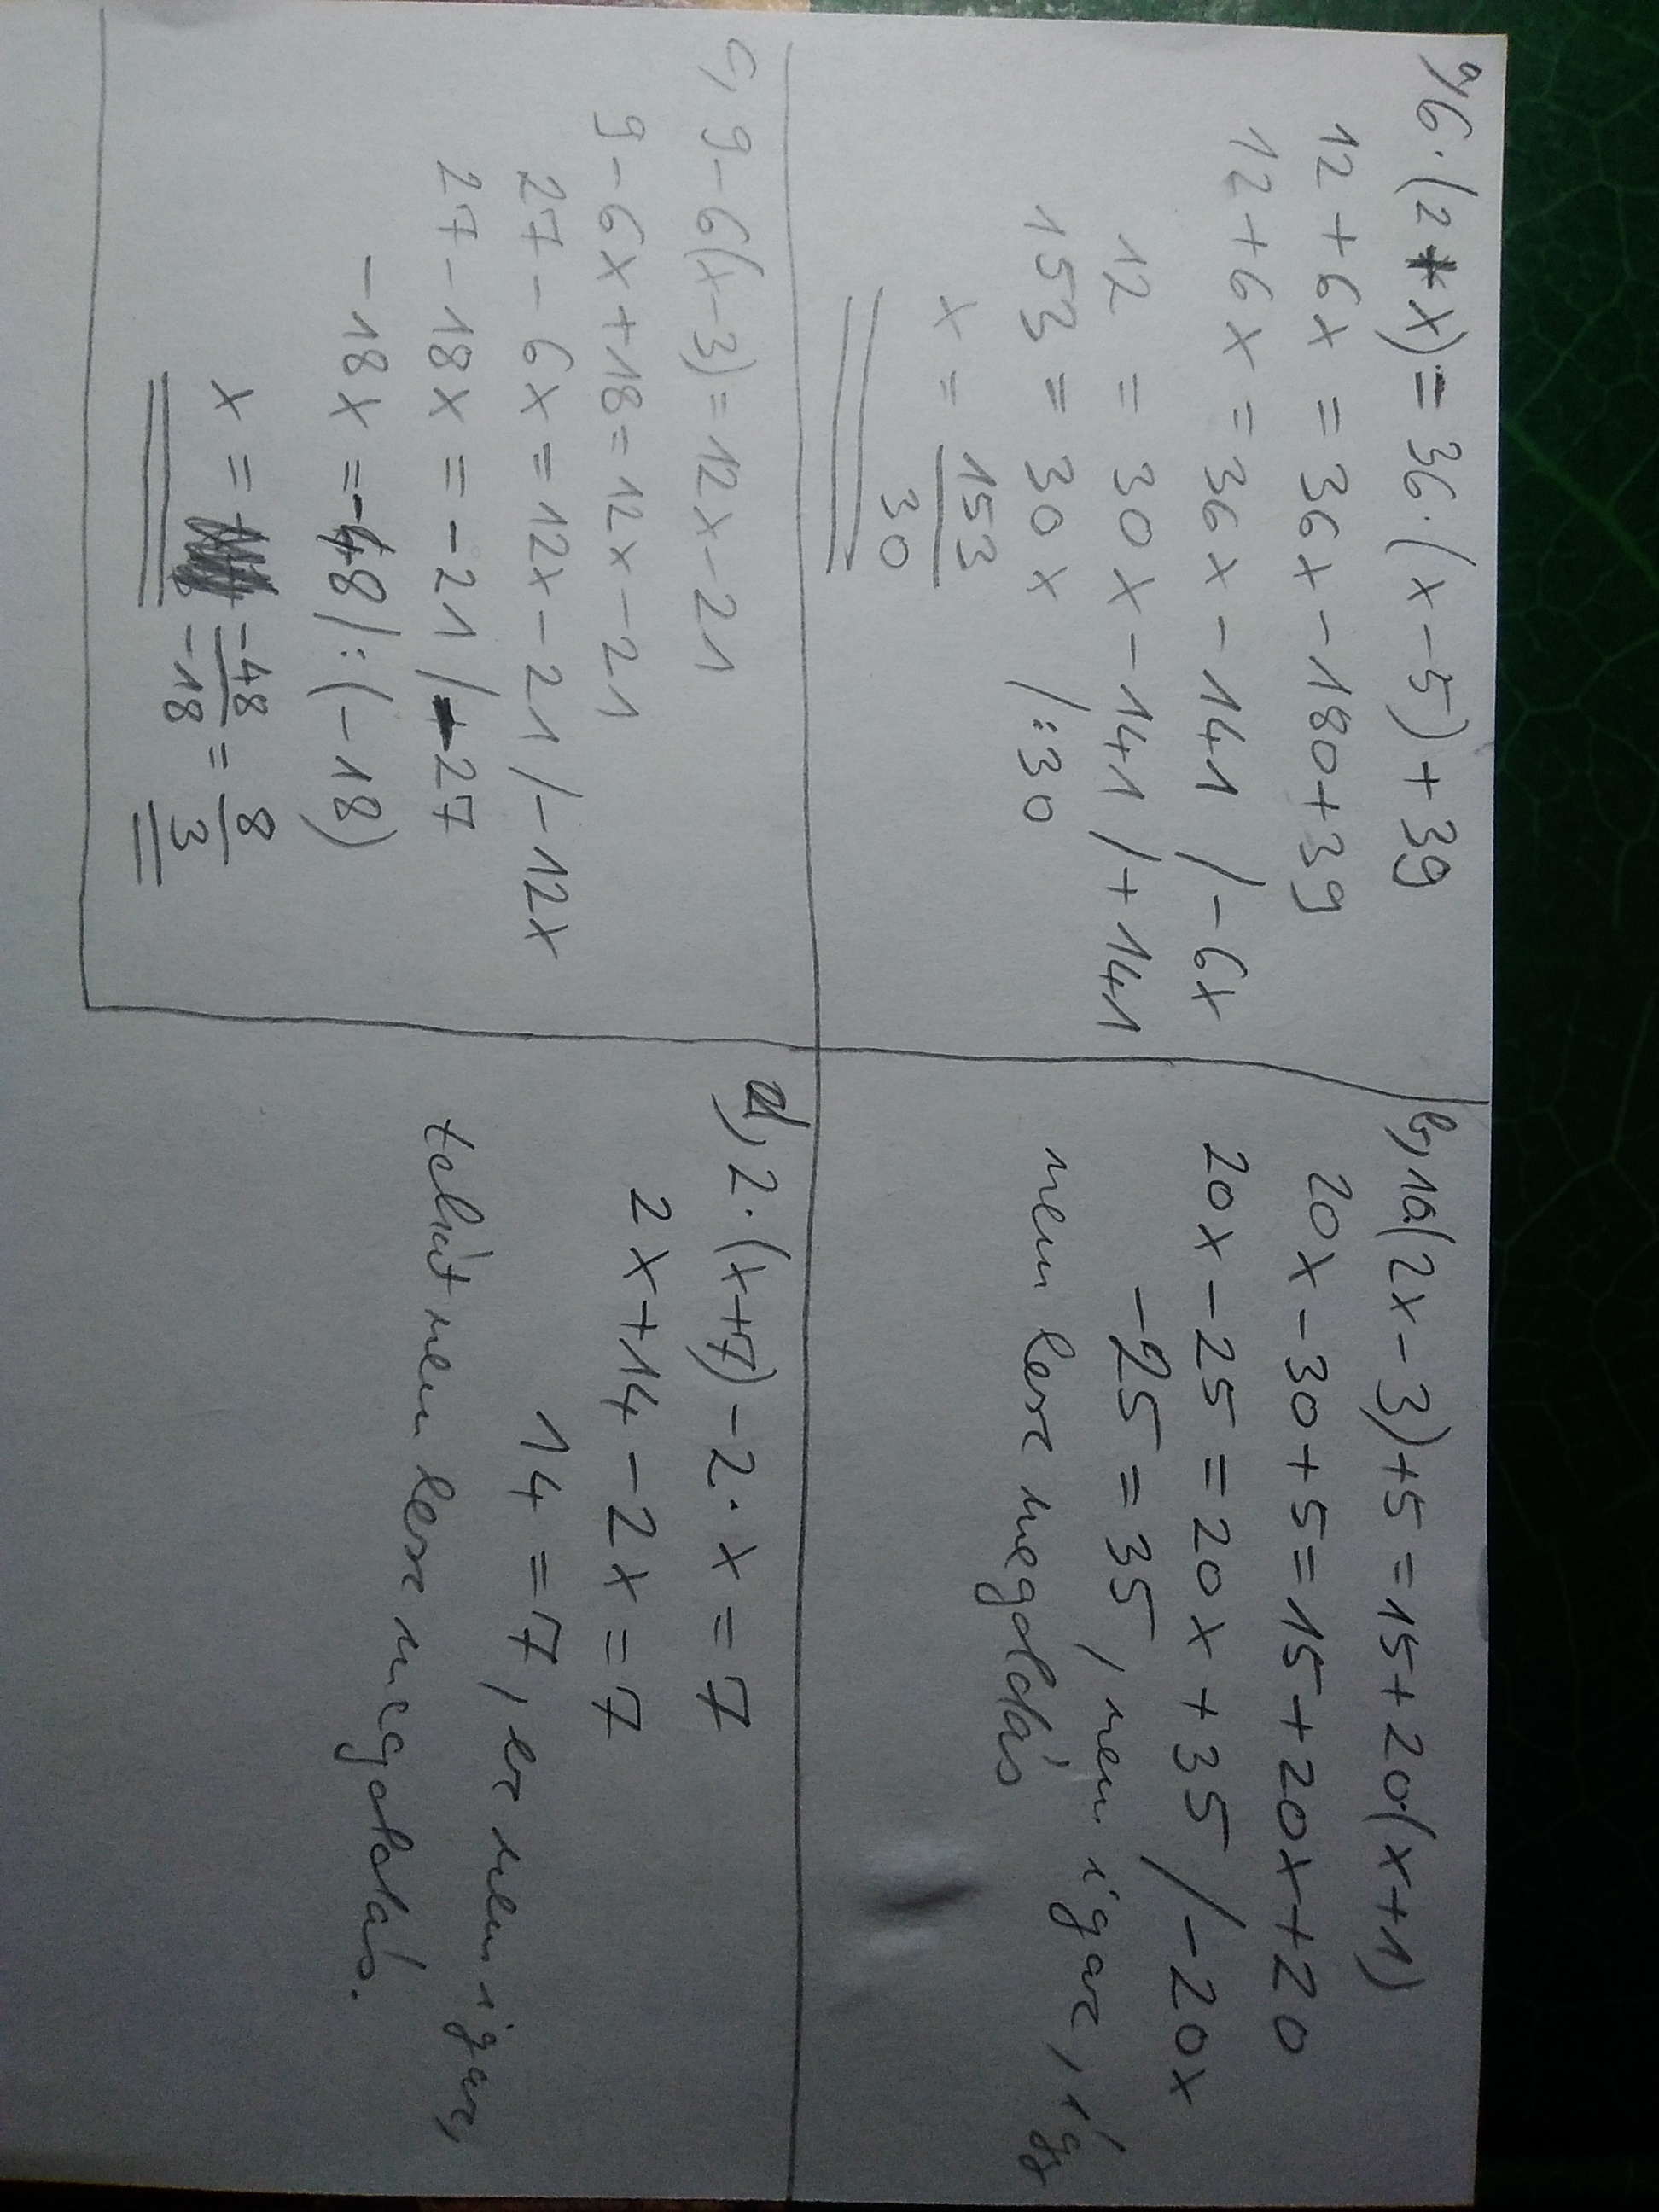 a, 6·(2+x) = 36·(x-5)+39
12+6x = 36x-180+39
12+6x = 36x-141 /-6x
12 = 30x-141 /+141
153 = 30x /:30
x = 153/30
b, 10(2x-3)+5 = 15+20·(x+1)
20x-30+5 = 15+20x+20
20x-25 = 20x+35 /-20x
-25 = 35, nem igaz, így
nem lesz megoldás
c, 9-6(x-3) = 12x-21
9-6x+18 = 12x-21
27-6x = 12x-21 /-12x
27-18x = -21 /-27
-18x = -48 /:(-18)
x = -48/-18 = 8/3
d, 2·(x+7)-2·x = 7
2x+14-2x = 7
14 = 7, ez nem igaz,
tehát nem lesz megoldás.